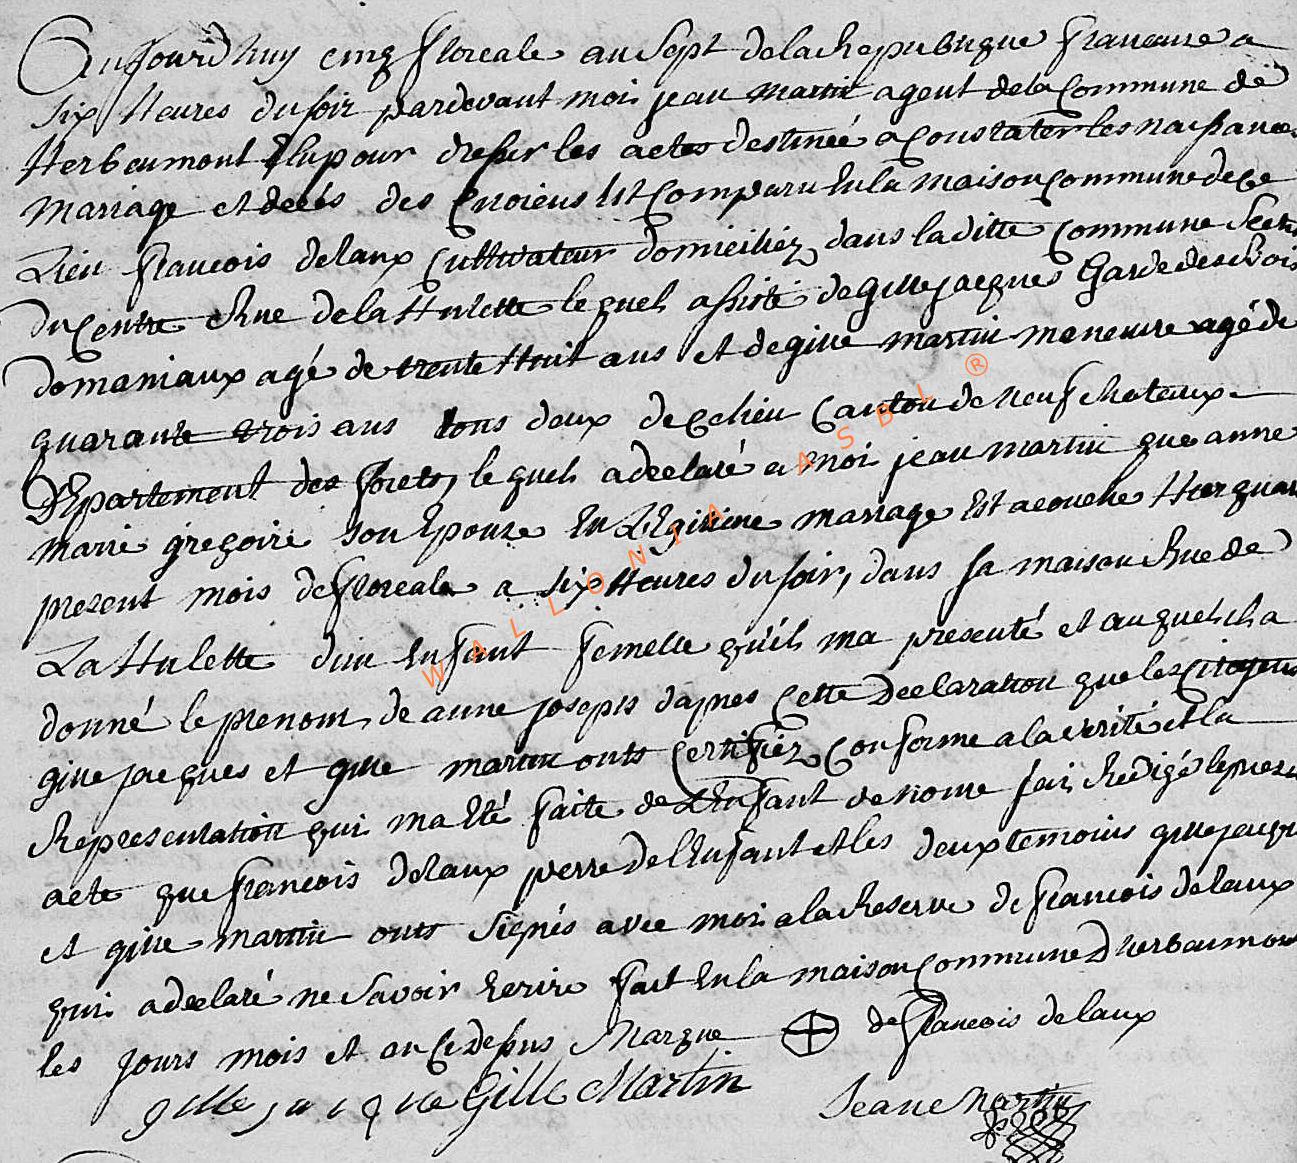 Aujourdhuy cinq floreale an sept de la Republique francaise a
six heures du soir pardevant moi jean martin agent de la commune de
Herbeumont Elu pour dresser les actes destinée a constater les naissances
mariage et decés des citoiens Est comparu En la maison commune de ce
Lieu francois delaux cultivateur domiciliéz dans la ditte commune Sect
du centre Rue de la Hulette lequel assisté de gille jacques Garde des bois
domaniaux agé de trente Huit ans et de gille martin maneuvre agé de
quarante trois ans tous deux de ce lieu canton de neufchateaux
Département des forets, lequel a declaré a moi jean martin que anne
marie gregoire son Epouze En Légitime mariage Est acouché Hier quatre
present mois de floreale a six Heures du soir, dans sa maison Rue de
La Hulette d'un Enfant femelle qu'il ma presenté et auquel il a
donné le prenom de anne joseph dapres cette declaration que les citoyens
gille jacques et gille martin onts certifiéz conforme a la verité et la
Representation qui ma Eté faite de L'Enfant denomé jai Rédigé le present
acte que francois delaux perre de l'Enfant et les deux temoins gille jacques
et gille martin onts signés avec moi a la Reserve de francois delaux
qui a declaré ne savoir Ecrire fait En la maison commune d'herbeumont
les jours mois et an ci dessus Marque de francois delaux
gille jaque Gille Martin Jean Martin
WALLONIA ASBL ®